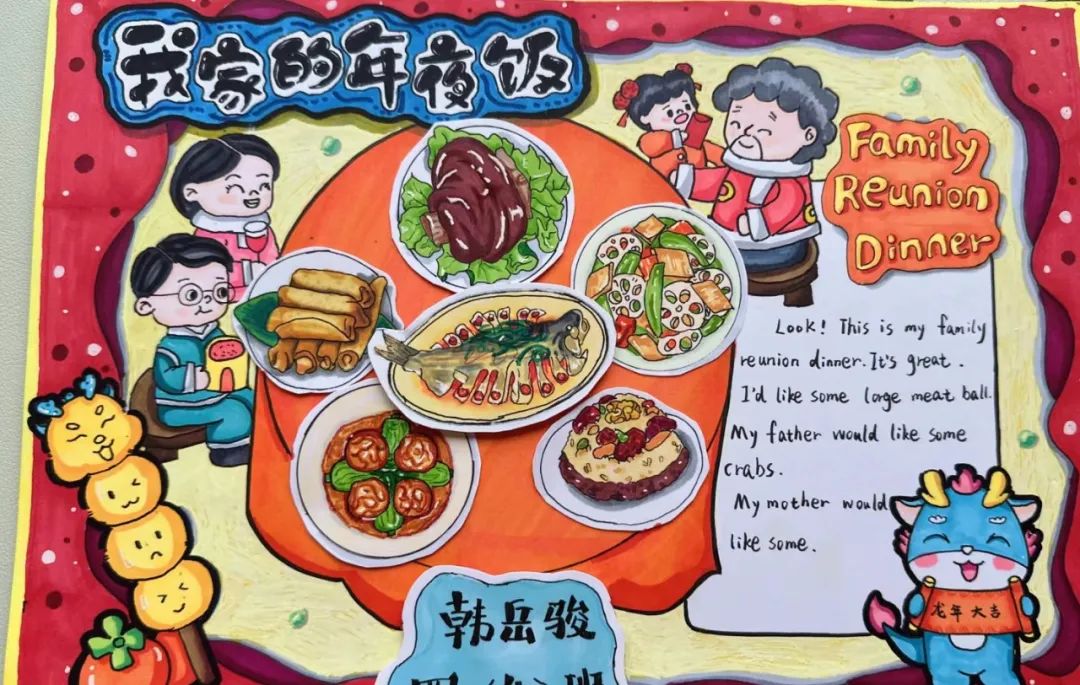 我家的年夜饭
Family
Reunion
Dinner
Look! This is my family
reunion dinner. It's great.
I'd like some large meat ball.
My father would like some
crabs.
My mother would
like some.
龙年大吉
韩岳骏